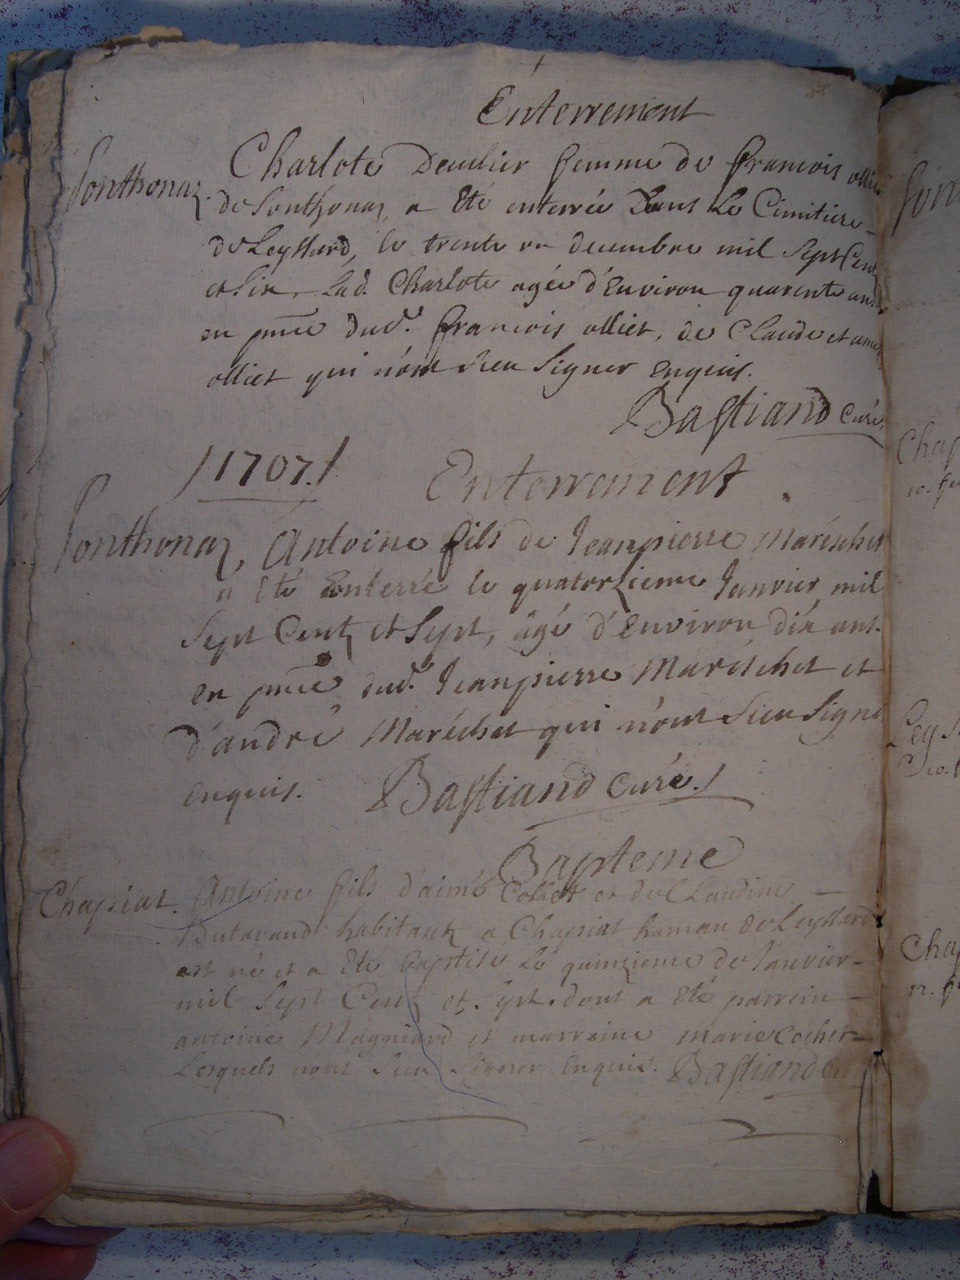 Enterrement
Sonthonaz. Charlote femme de francois olliet
de Sonthonaz, a été enterrée dans Le Cimitiere
de Leyssard, le trente un decembre mil Sept Cent
et Six, Lad. Charlote agée d'Environ quarente ans
en pñce dud. francois olliet, de Claude et
olliet qui n'ont sceu signer enquis.
Bastiand Curé
/1707./ Enterrement
Sonthonaz, Antoine fils de Jeanpierre Maréschet
a été Enterré le quatorzieme Janvier mil
Sept Centz et Sept, âgé d'Environ dix ans.
en pñce dud. Jeanpierre Maréschet et
d'andré Maréchet qui n'ont sceu signe
enquis. Bastiand Curé./
Bapteme
Chapiat. Antoine fils d'aimé Collet et de Claudine
habitantz a Chapiat hameau de Leyssard
est né et a été baptisé Le quinzieme de Janvier
mil Sept Centz et Sept. dont a été parrein
antoine Magniard et marreine marie Cochet
Lesquels nont sceu signer enquis. Bastiand Cu
Chap
Chap